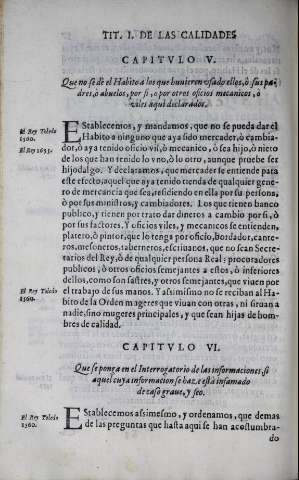 TIT. I. DE LAS CALIDADES
CAPITVLO V.
Que no se dè el Habito a los que huuieren vsado ellos, ò sus pa-
dres, o abuelos, por si, o por otros oficios mecanicos, ò
viles aqui declarados.
El Rey Toledo
1560.
El Rey 1653.
Establecemos, y mandamos, que no se pueda dar el
Habito a ninguno que aya sido mercader, ò cambia-
dor, ò aya tenido oficio vil, ò mecanico, ò sea hijo, ò nieto
de los que han tenido lo vno, ò lo otro, aunque pruebe ser
hijodalgo. Y declaramos, que mercader se entiende para
este efecto, aquel que aya tenido tienda de qualquier gene-
ro de mercancia que sea, residiendo en ella por su persona,
ò por sus ministros, y cambiadores. Los que tienen banco
publico, y tienen por trato dar dineros a cambio por si, ò
por sus factores. Y oficios viles, y mecanicos se entienden,
platero, ò pintor, que lo tenga por oficio, bordador, cante-
ros, mesoneros, taberneros, escriuanos, que no sean Secre-
tarios del Rey, ò de qualquier persona Real: procuradores
publicos, ò otros oficios semejantes a estos, ò inferiores
dellos, como son sastres, y otros semejantes, que viuen por
el trabajo de sus manos. Y assimismo no se reciban al Ha-
El Rey Toledo
1560.
bito de la Orden mugeres que viuan con otras, ni siruan a
nadie, sino mugeres principales, y que sean hijas de hom-
bres de calidad.
CAPITVLO VI.
Que se ponga en el Interrogatorio de las informaciones, si
aquel cuya informacion se haz, està infamado
de caso graue, y feo.
El Rey Toledo
1560.
Establecemos assimesmo, y ordenamos, que demas
de las preguntas que hasta aqui se han acostumbra-
do